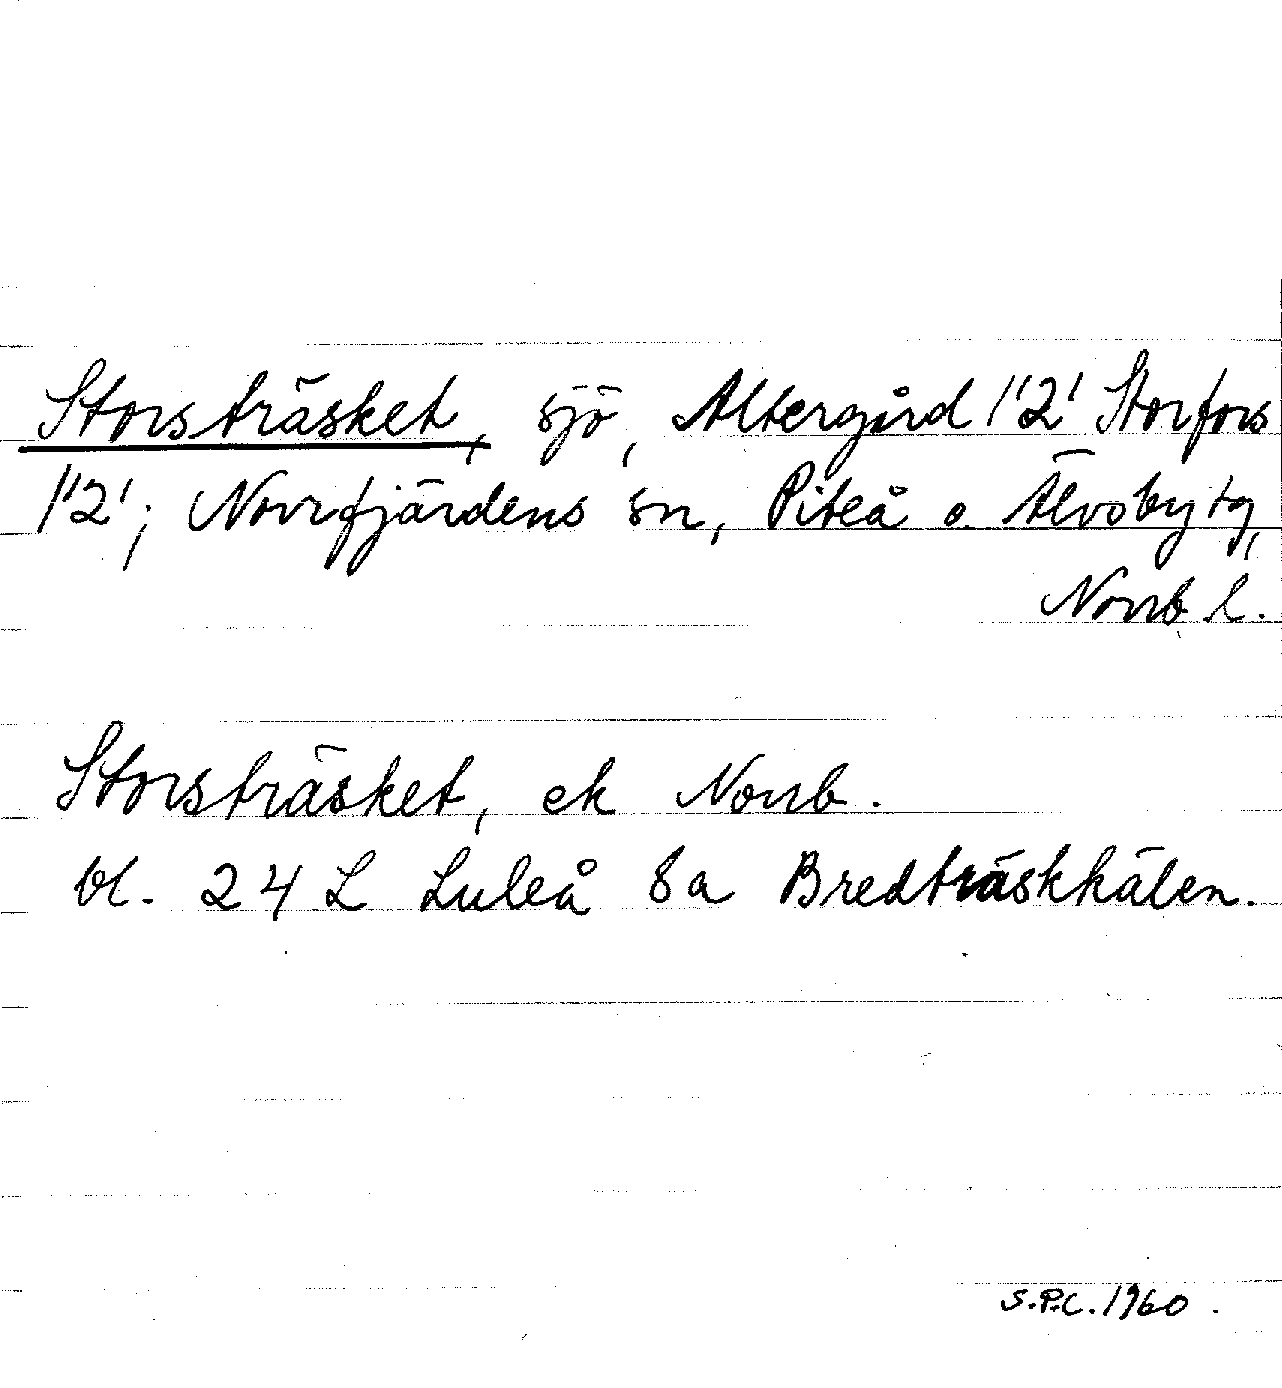 Storsträsket, sjö, Altergård 1'2' Storfors
1'2'; Norrfjärdens sn, Piteå o. Älvsby tg,
Norrb. l.
Storsträsket, ek Norrb.
bl. 24 L Luleå 8a Bredträskhälen.
S.P.C. 1960.